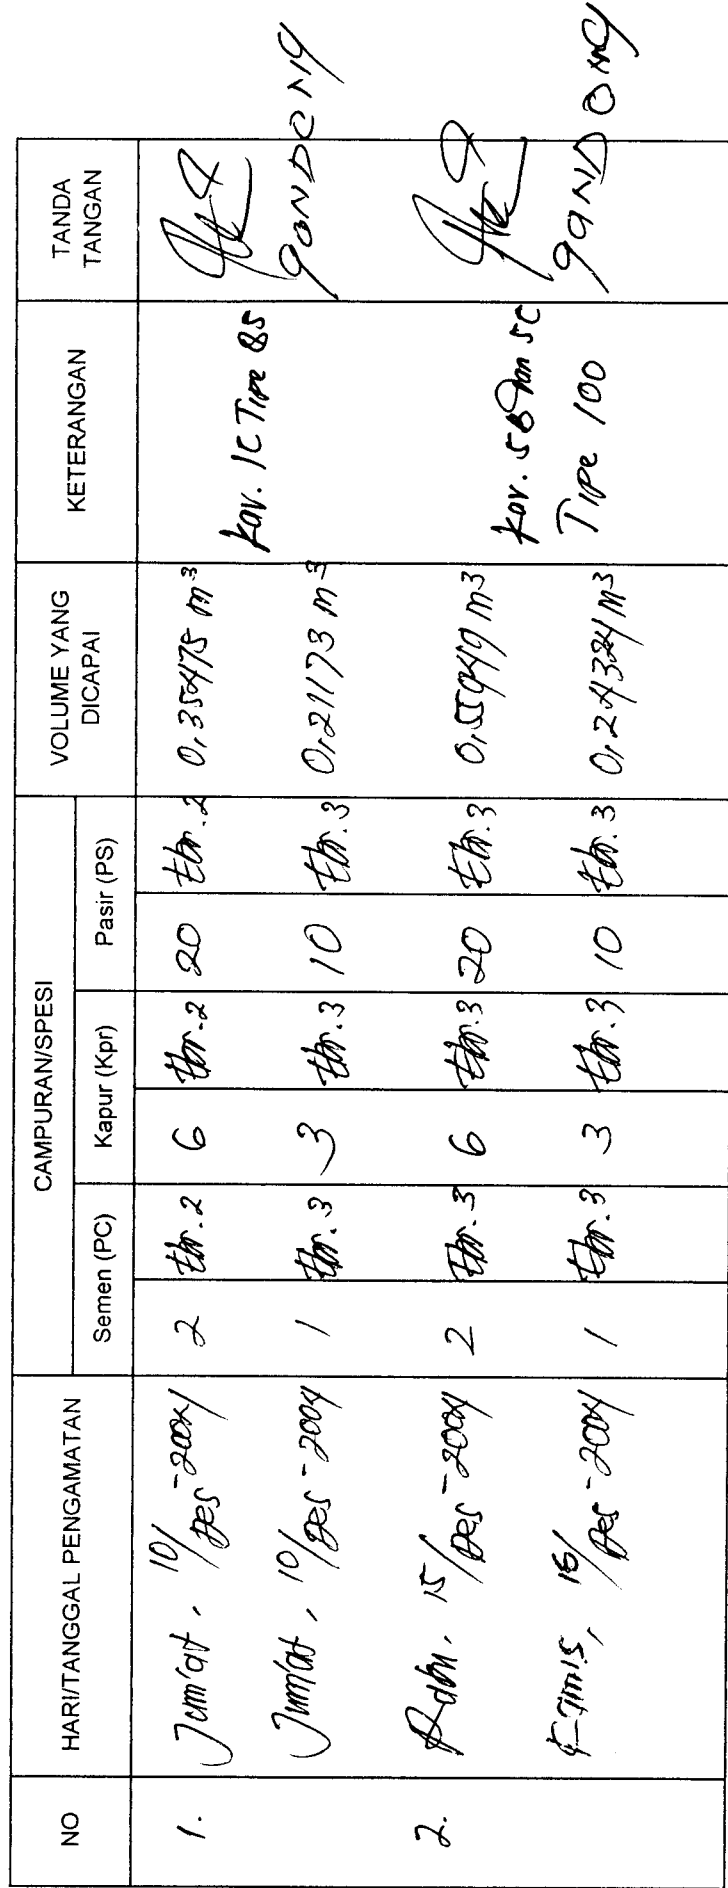 NO HARI/TANGGAL PENGAMATAN CAMPURAN/SPESI VOLUME YANG DICAPAI KETERANGAN TANDA TANGAN
Semen (PC) Kapur (Kpr) Pasir (PS)
1. Jum'at, 10/Des-2004 2 tbr.2 6 tbr.2 20 tbr.2 0,35475 m3
Kav. 1C Tipe 85
Jum'at, 10/Des-2004 1 tbr.3 3 tbr.3 10 tbr.3 0,21173 m3
GONDONG
2. Rabu, 15/Des-2004 2 tbr.3 6 tbr.3 20 tbr.3 0,55949 m3
Kav. 5B dan 5C
Kamis, 16/Des-2004 1 tbr.3 3 tbr.3 10 tbr.3 0,24324 m3
Tipe 100
GONDONG